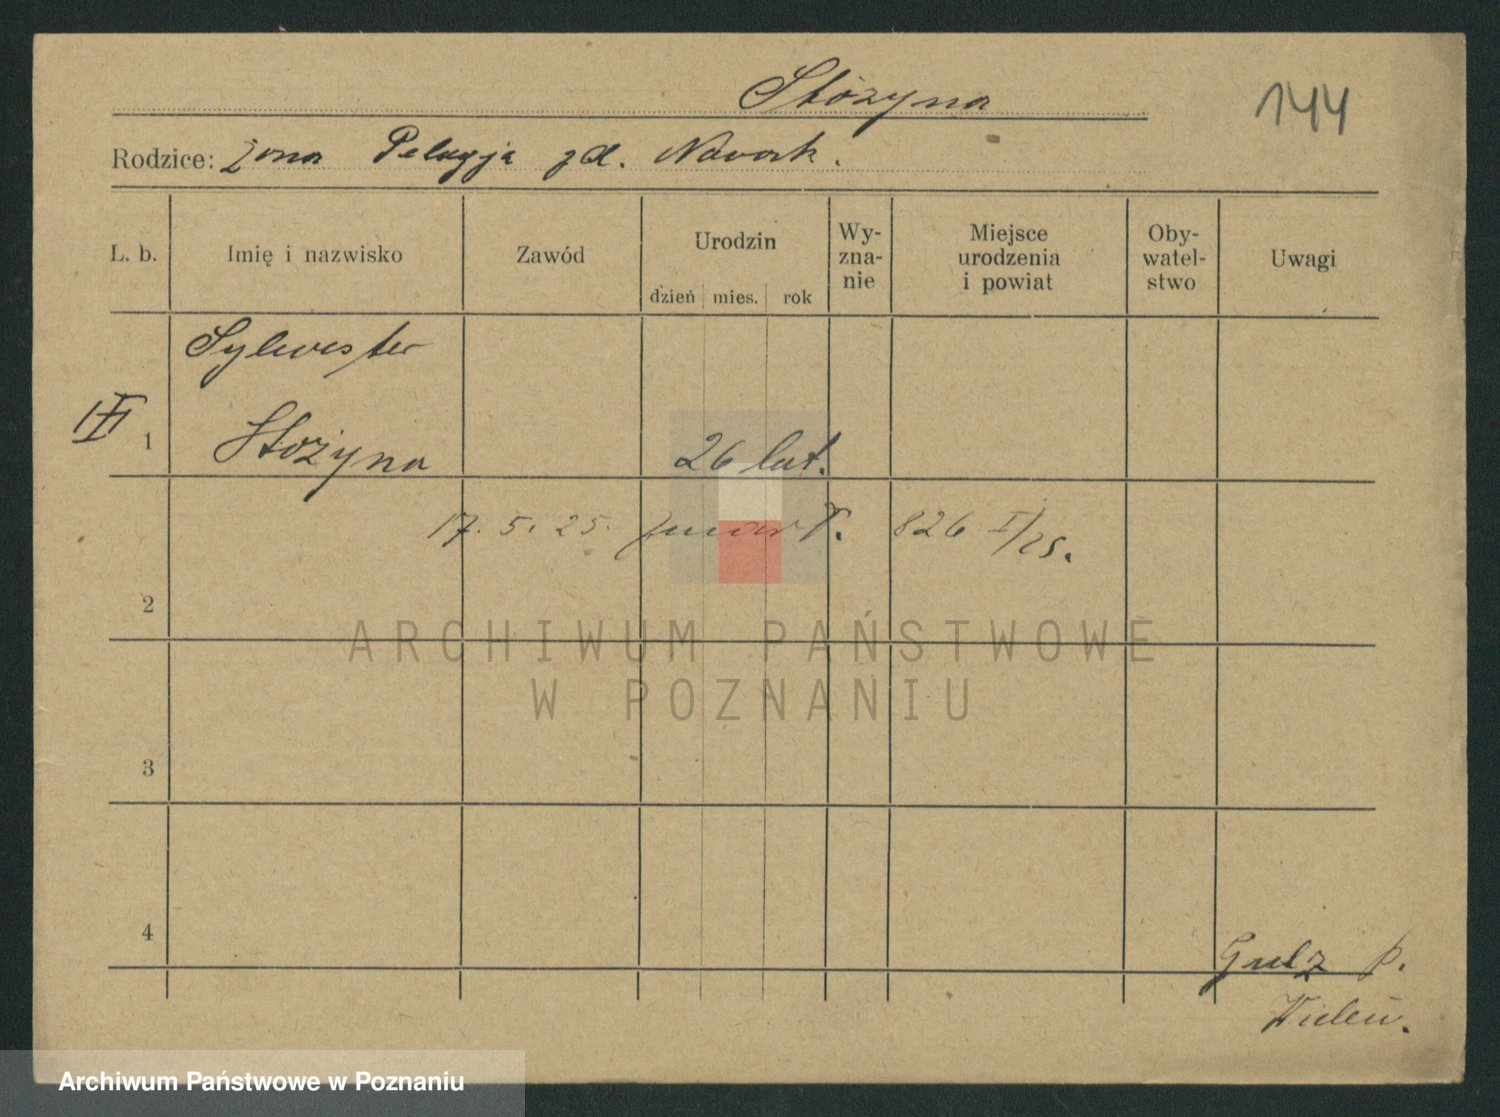 Stożyna
144
Rodzice: żona Pelagja zd. Nowak.
L. b. Imię i nazwisko Zawód Urodzin dzień mies. rok Wy-zna-nie Miejsce urodzenia i powiat Oby-watel-stwo Uwagi
Sylwester
III 1 Stożyna 26 lat.
17. 5. 25. zmarł. 826 I/25.
2
ARCHIWUM PAŃSTWOWE
W POZNANIU
3
4
p.
Archiwum Państwowe w Poznaniu